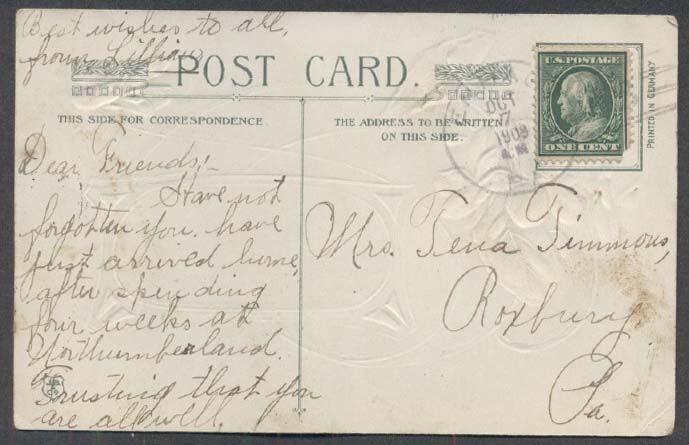 Best wishes to all,
from Lillian
POST CARD.
THIS SIDE FOR CORRESPONDENCE
THE ADDRESS TO BE WRITTEN
ON THIS SIDE.
OCT
7
1909
U.S. POSTAGE
ONE CENT
PRINTED IN GERMANY
Dear Friends;-
Have not
forgotten you, have
just arrived home,
after spending
four weeks at
Northumberland.
Trusting that you
are all well.
Mrs. Tena Timmons,
Roxbury
Pa.